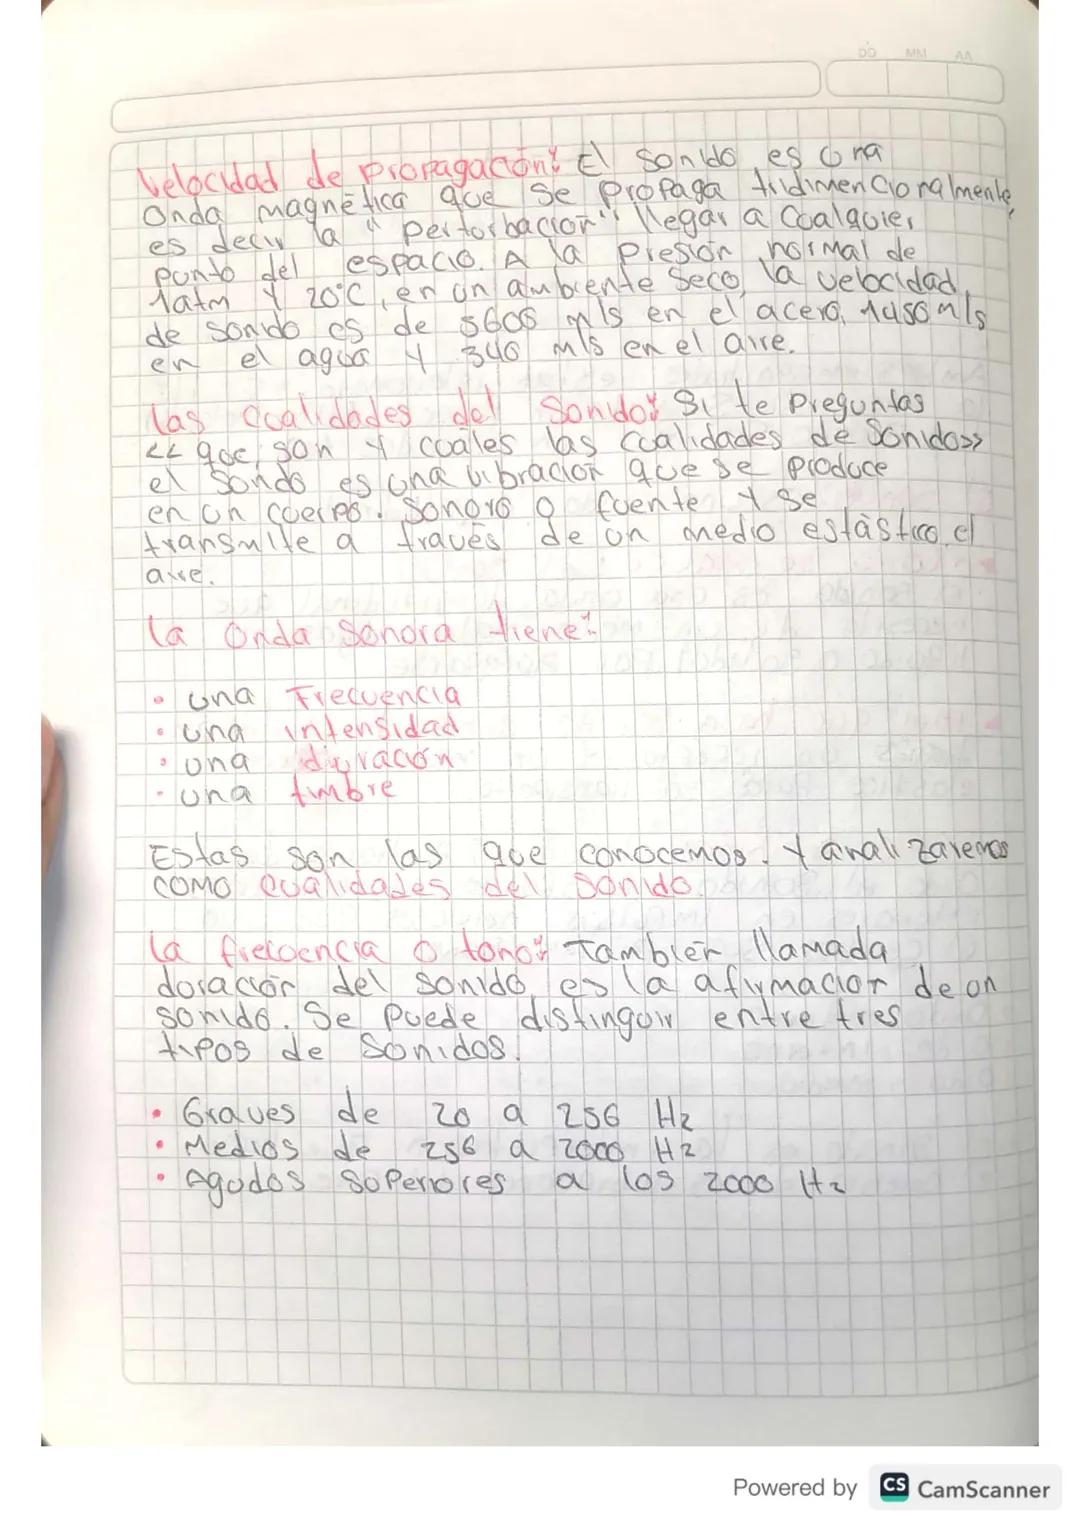 DD MM AA
Velocidad de Propagación: El sonido es una
Onda magnética que se propaga tridimencionalmente,
es decir la "perturbación" llegar a Cualquier
punto del espacio. A la Presión normal de
1atm y 20°C, en un ambiente seco, la velocidad
de sonido es de 5600 m/s en el acero, 1450m/s
en el agua y 340 m/s en el aire.
las cualidades del Sonido: Si te Preguntas
<< que son y cuales las cualidades de Sonido>>
el Sonido es una vibración que se produce
en un cuerpo. Sonoro o fuente y se
transmite a través de un medio estástico el
aire.
la Onda Sonora tiene:
• una Frecuencia
• una intensidad
• una duración
• una timbre
Estas son las que conocemos. y analizaremos
como cualidades del Sonido.
la frecuencia o tono: También llamada
duración del sonido es la afirmación de un
sonido. Se Puede distinguir entre tres
tipos de Sonidos.
• Graves de 20 a 256 Hz
• Medios de 256 a 2000 Hz
• Agudos superiores a los 2000 Hz
Powered by CS CamScanner